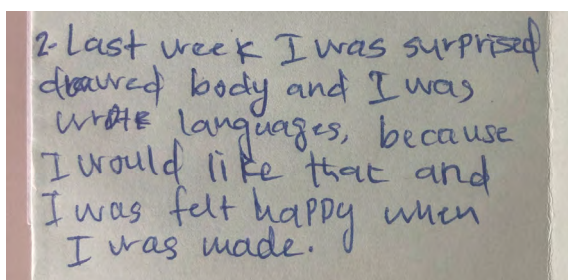 2- Last week I was surprised
drawed body and I was
wrote languages, because
I would like that and
I was felt happy when
I was made.